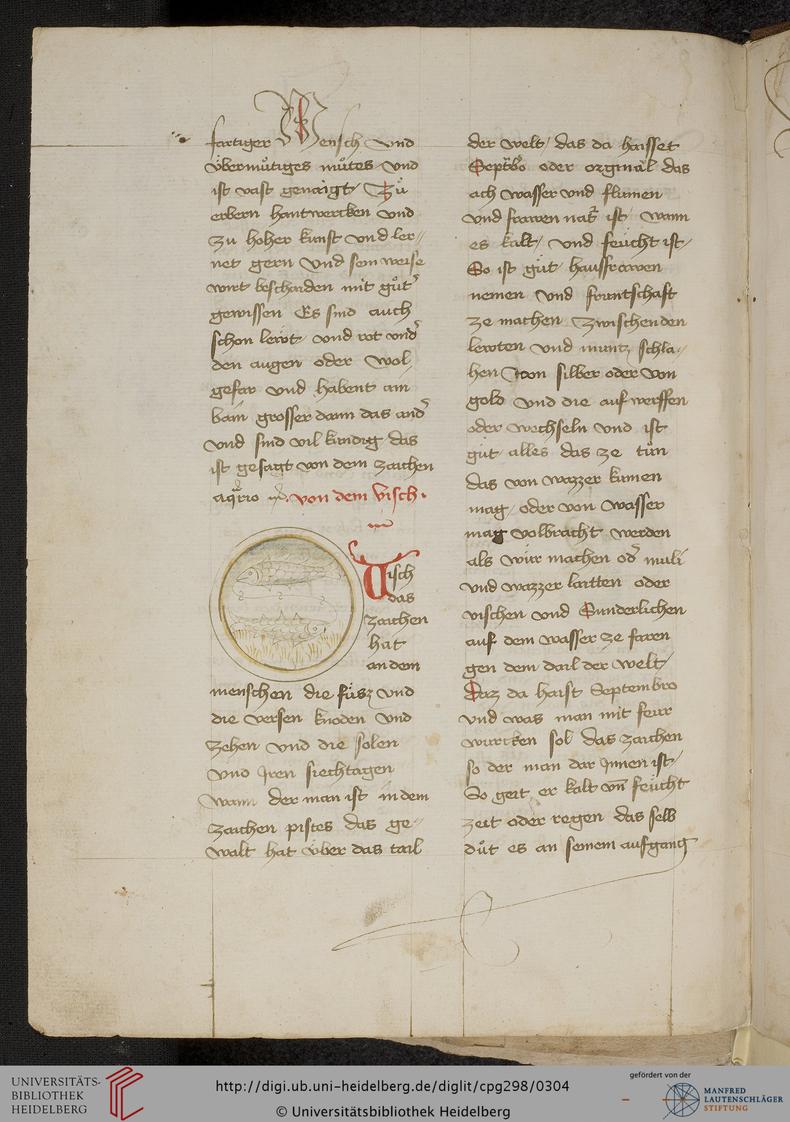 fertiger Mensch vnd
übermůtiges můtes vnd
ist vast genaigt Zů
erbern hantwercken vnd
zu hoher kunst vnd ler-
net gern vnd sein weise
wirt beschaiden mit gůt
gewissen Es sind auch
schon lewt vnd rot vnd
den augen oder wol
gefar vnd habent ain
bain grosser dann das and
vnd sind vil kundig das
ist gesagt von dem zaichen
aqrio von dem visch
Visch
das
zaichen
hat
an dem
menschen die füsz vnd
die versen knoden vnd
zehen vnd die solen
vnd Iren siechtagen
wann der man ist in dem
zaichen pistes das ge-
walt hat über das tail
der welt das da haisset
Septbo oder orginal das
ach wasser vnd flumen
vnd frawen nat ist wann
es kalt vnd feücht ist
So ist güt haussfrawen
nemen vnd frantschaft
ze machen Zwischen den
lewten vnd muntz schla-
hen von silber oder von
gold vnd die auf werffen
oder wechseln vnd ist
güt alles das ze tün
das von wazzer kumen
mag oder von wasser
mag volbracht werden
als wür machen od muli
vnd wazzer laitten oder
vischen vnd Sunderlichen
auf dem wasser ze faren
gen dem dail der welt
Daz da haist Septembro
vnd was man mit feür
wurcken sol das zaichen
so der man dar Innen ist
So geit er kalt vn feücht
zeit oder regen das selb
důt es an seinem aufgang
UNIVERSITÄTS-
BIBLIOTHEK
HEIDELBERG
http://digi.ub.uni-heidelberg.de/diglit/cpg298/0304
© Universitätsbibliothek Heidelberg
gefördert von der
MANFRED
LAUTENSCHLÄGER
STIFTUNG